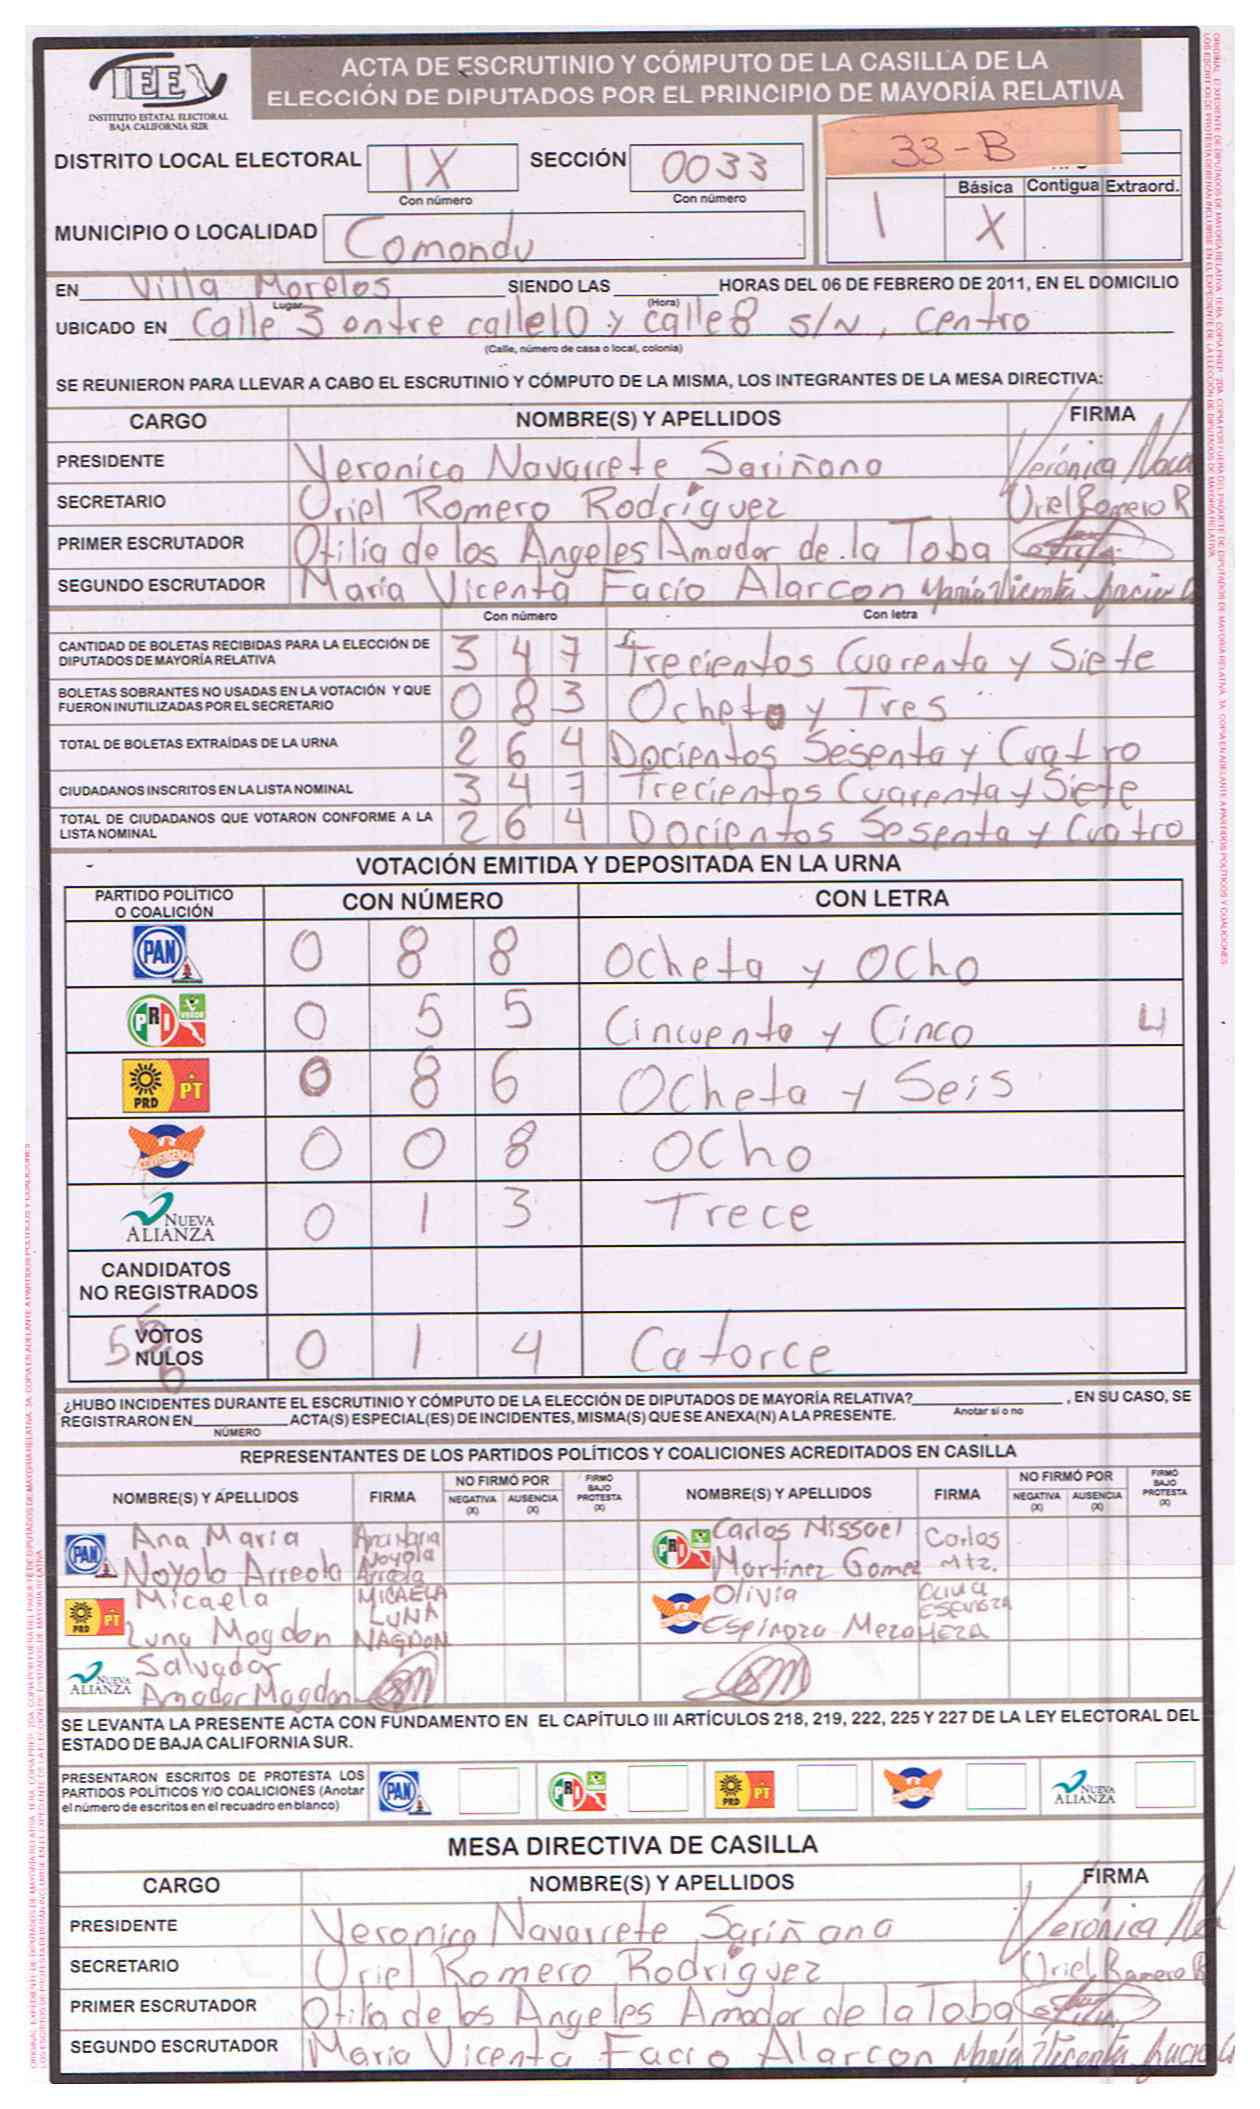 IEE
INSTITUTO ESTATAL ELECTORAL
BAJA CALIFORNIA SUR
ACTA DE ESCRUTINIO Y CÓMPUTO DE LA CASILLA DE LA
ELECCIÓN DE DIPUTADOS POR EL PRINCIPIO DE MAYORÍA RELATIVA
33-B
DISTRITO LOCAL ELECTORAL IX SECCIÓN 0033
Con número Con número
Básica Contigua Extraord.
1 X
MUNICIPIO O LOCALIDAD Comondu
EN Villa Morelos SIENDO LAS HORAS DEL 06 DE FEBRERO DE 2011, EN EL DOMICILIO
Lugar (Hora)
UBICADO EN Calle 3 entre calle10 y calle8 s/n, Centro
(Calle, número de casa o local, colonia)
SE REUNIERON PARA LLEVAR A CABO EL ESCRUTINIO Y CÓMPUTO DE LA MISMA, LOS INTEGRANTES DE LA MESA DIRECTIVA:
CARGO NOMBRE(S) Y APELLIDOS FIRMA
PRESIDENTE Veronica Navarrete Sariñana Verónica
SECRETARIO Uriel Romero Rodríguez Uriel Romero R
PRIMER ESCRUTADOR Otilia de los Angeles Amador de la Toba
SEGUNDO ESCRUTADOR María Vicenta Facio Alarcon María Vicenta Facio
Con número Con letra
CANTIDAD DE BOLETAS RECIBIDAS PARA LA ELECCIÓN DE
DIPUTADOS DE MAYORÍA RELATIVA 3 4 7 Trecientos Cuarenta y Siete
BOLETAS SOBRANTES NO USADAS EN LA VOTACIÓN Y QUE
FUERON INUTILIZADAS POR EL SECRETARIO 0 8 3 Ocheta y Tres
TOTAL DE BOLETAS EXTRAÍDAS DE LA URNA 2 6 4 Docientos Sesenta y Cuatro
CIUDADANOS INSCRITOS EN LA LISTA NOMINAL 3 4 7 Trecientos Cuarenta y Siete
TOTAL DE CIUDADANOS QUE VOTARON CONFORME A LA
LISTA NOMINAL 2 6 4 Docientos Sesenta y Cuatro
VOTACIÓN EMITIDA Y DEPOSITADA EN LA URNA
PARTIDO POLÍTICO
O COALICIÓN CON NÚMERO CON LETRA
PAN 0 8 8 Ocheta y Ocho
PRI VERDE 0 5 5 Cincuenta y Cinco 4
PRD PT 0 8 6 Ocheta y Seis
CONVERGENCIA 0 0 8 Ocho
NUEVA
ALIANZA 0 1 3 Trece
CANDIDATOS
NO REGISTRADOS
VOTOS
NULOS 0 1 4 Catorce
¿HUBO INCIDENTES DURANTE EL ESCRUTINIO Y CÓMPUTO DE LA ELECCIÓN DE DIPUTADOS DE MAYORÍA RELATIVA? , EN SU CASO, SE
Anotar si o no
REGISTRARON EN ACTA(S) ESPECIAL(ES) DE INCIDENTES, MISMA(S) QUE SE ANEXA(N) A LA PRESENTE.
NÚMERO
REPRESENTANTES DE LOS PARTIDOS POLÍTICOS Y COALICIONES ACREDITADOS EN CASILLA
NOMBRE(S) Y APELLIDOS FIRMA NO FIRMÓ POR NEGATIVA (X) AUSENCIA (X) FIRMÓ BAJO PROTESTA (X) NOMBRE(S) Y APELLIDOS FIRMA NO FIRMÓ POR NEGATIVA (X) AUSENCIA (X) FIRMÓ BAJO PROTESTA (X)
PAN Ana María Noyola Arreola Ana Maria Noyola Arreola PRI Carlos Nissael Martinez Gomez Carlos Mtz.
PRD PT Micaela Luna Magdon MICAELA LUNA MAGDON Olivia Espinoza Meza OLIVIA ESPINOZA MEZA
NUEVA ALIANZA Salvador Amador Magdon
SE LEVANTA LA PRESENTE ACTA CON FUNDAMENTO EN EL CAPÍTULO III ARTÍCULOS 218, 219, 222, 225 Y 227 DE LA LEY ELECTORAL DEL
ESTADO DE BAJA CALIFORNIA SUR.
PRESENTARON ESCRITOS DE PROTESTA LOS
PARTIDOS POLÍTICOS Y/O COALICIONES (Anotar
el número de escritos en el recuadro en blanco)
PAN PRI PRD PT NUEVA ALIANZA
MESA DIRECTIVA DE CASILLA
CARGO NOMBRE(S) Y APELLIDOS FIRMA
PRESIDENTE Veronica Navarrete Sariñana Verónica
SECRETARIO Uriel Romero Rodriguez Uriel Romero R
PRIMER ESCRUTADOR Otilia de los Angeles Amador de la Toba
SEGUNDO ESCRUTADOR María Vicenta Facio Alarcon María Vicenta Facio